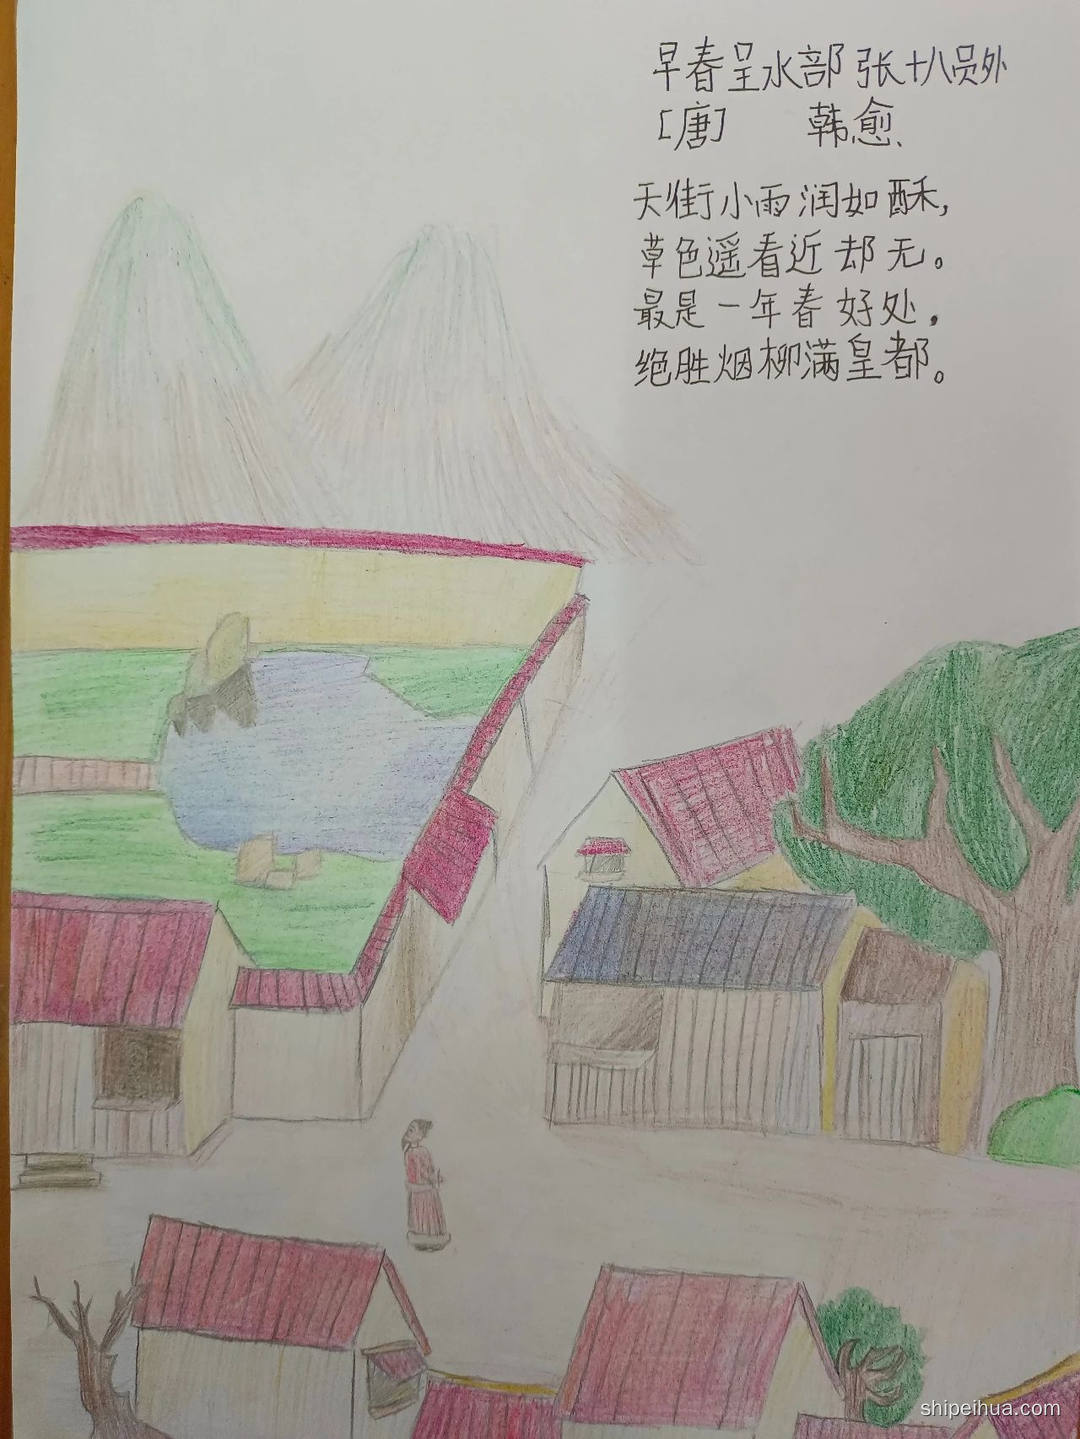 早春呈水部张十八员外
[唐] 韩愈
天街小雨润如酥,
草色遥看近却无。
最是一年春好处,
绝胜烟柳满皇都。
shipeihua.com